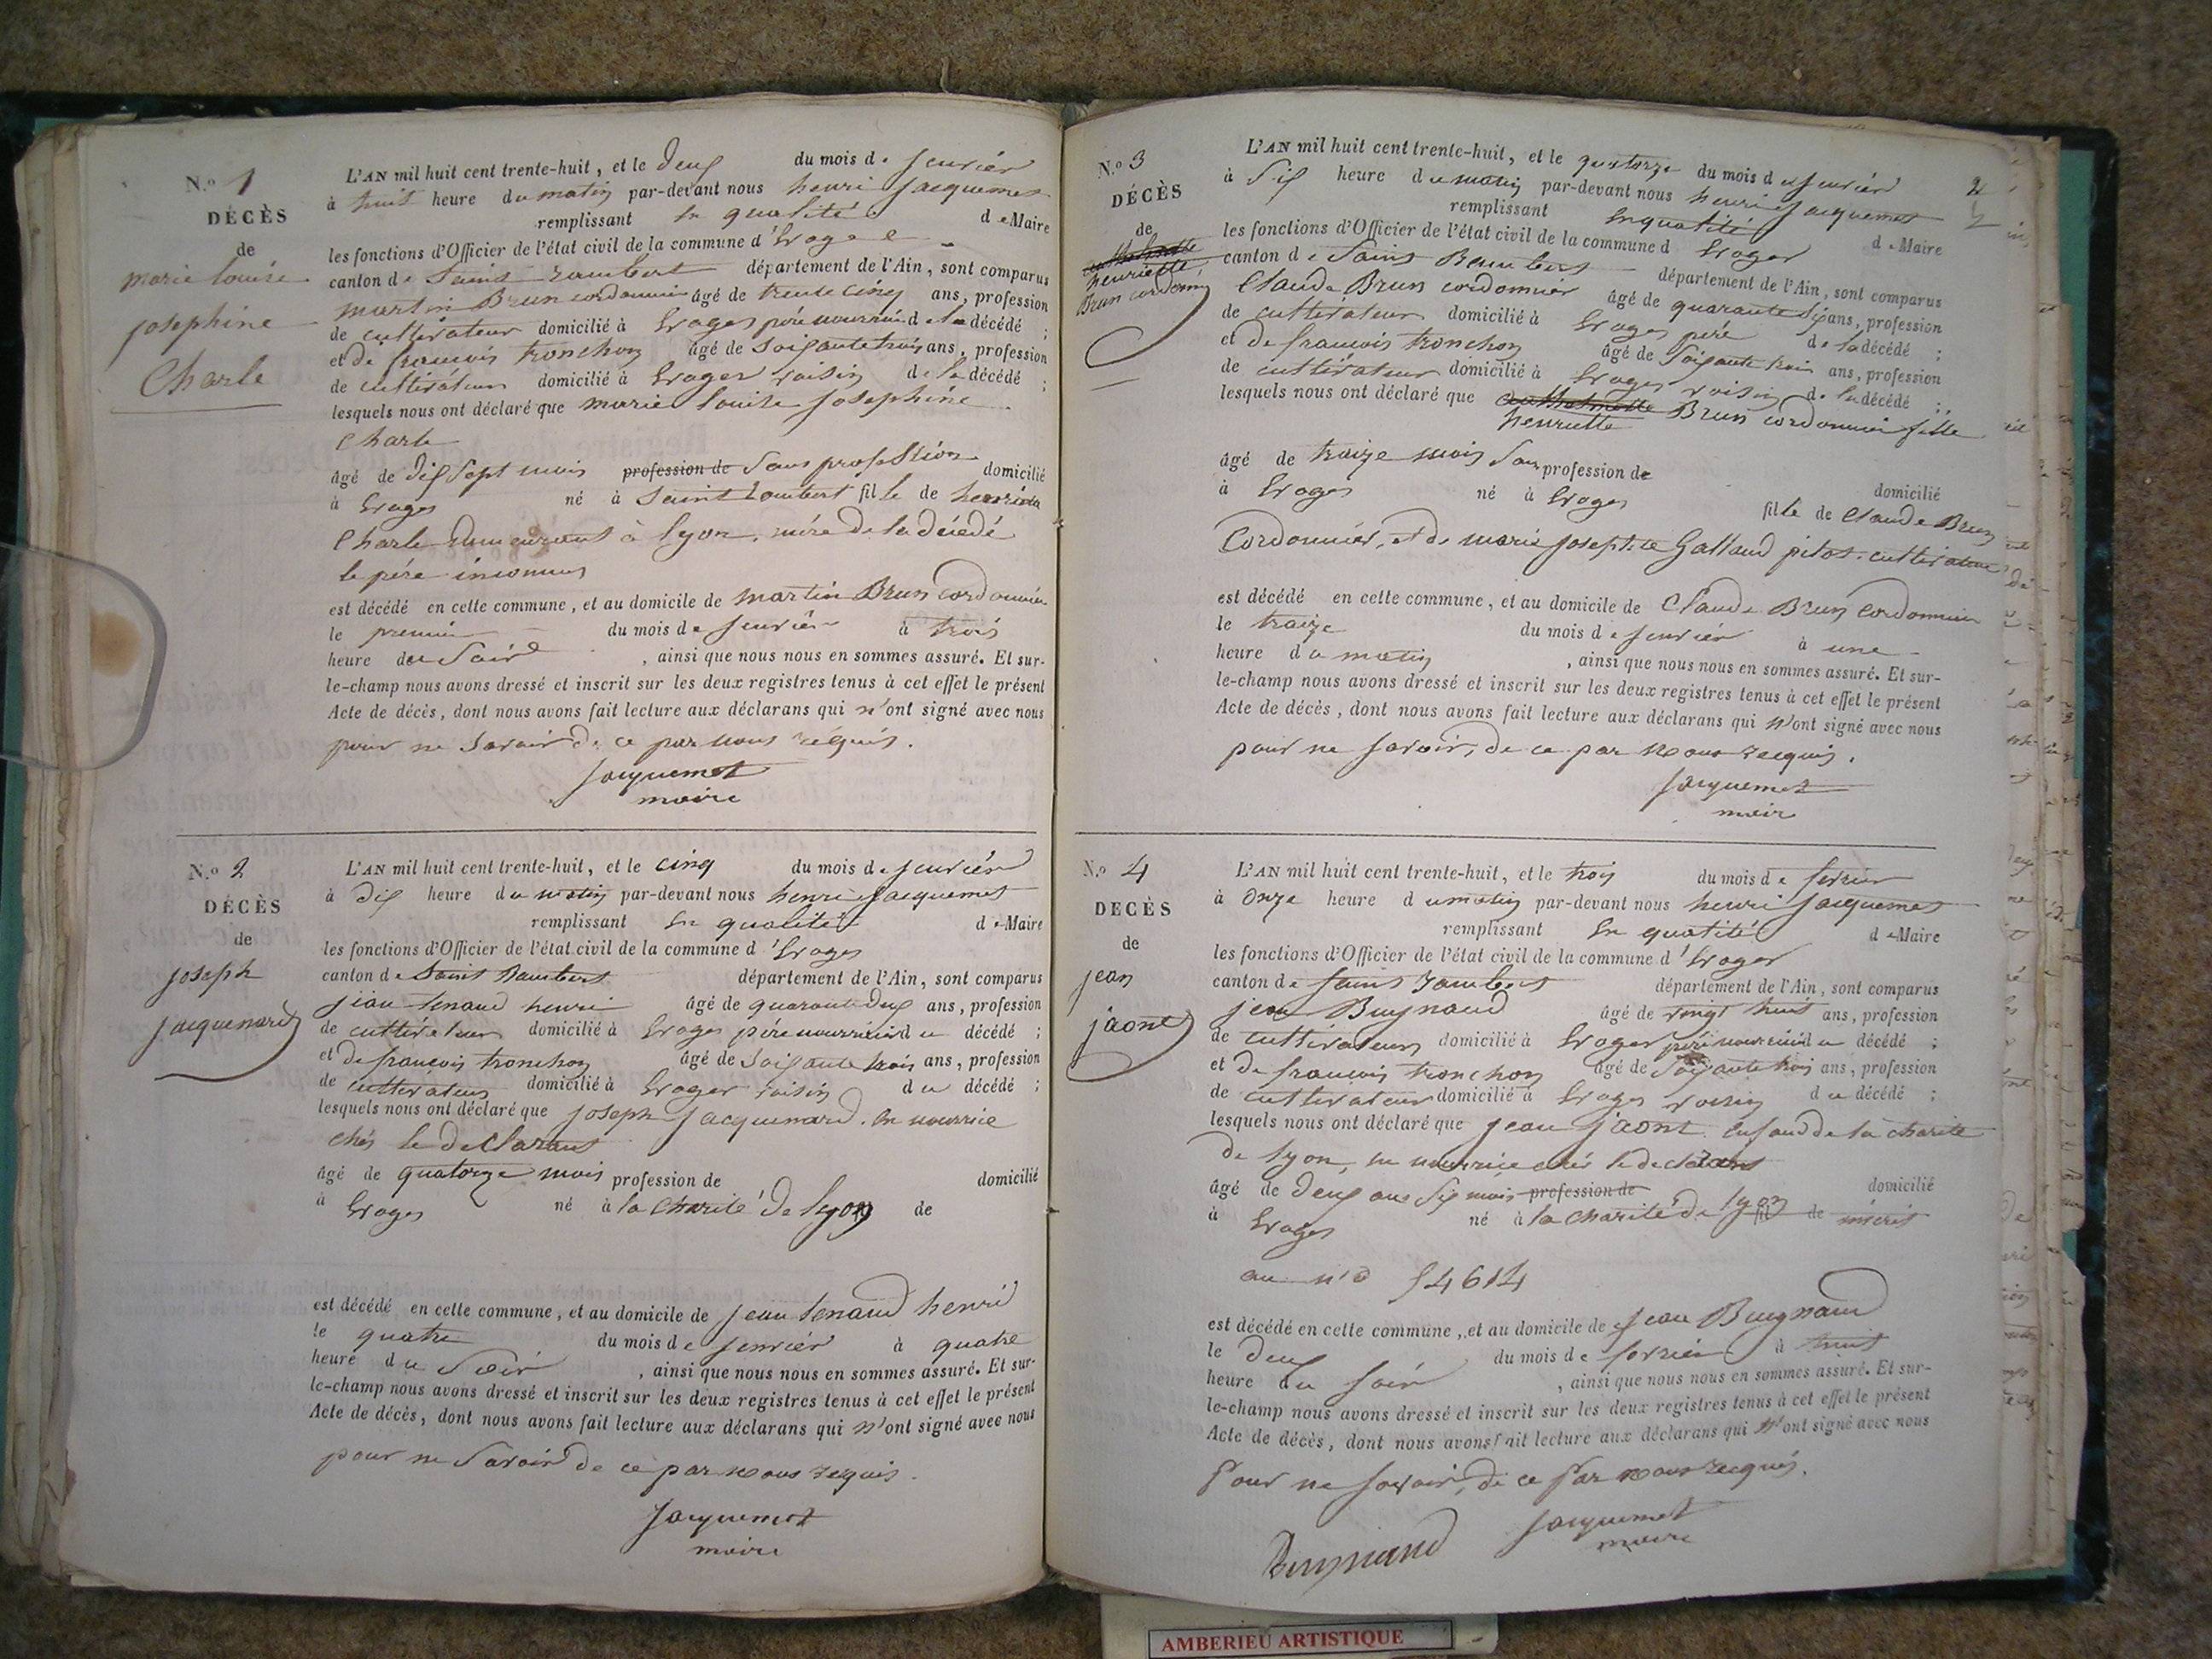 N.º 1
DÉCÈS
de
marie louise
josephine
Charle
L'AN mil huit cent trente-huit, et le deux du mois de janvier
à huit heure du matin par-devant nous henri jacquemet
remplissant en qualité de Maire
les fonctions d'Officier de l'état civil de la commune d'
canton de Saint rambert département de l'Ain, sont comparus
martin Brun cordonnier âgé de trente cinq ans, profession
de cultivateur domicilié à père nourricier de la décédé ;
et de francois tronchon âgé de soixante trois ans, profession
de cultivateur domicilié à voisin de la décédé ;
lesquels nous ont déclaré que marie louise josephine
Charle
âgé de dix sept mois profession de sans profession domicilié
à né à Saint rambert fille de
Charle demeurant à lyon, mère de la décédé
le père inconnus
est décédé en cette commune, et au domicile de martin Brun cordonnier
le premier du mois de janvier à trois
heure du Soir , ainsi que nous nous en sommes assuré. Et sur-
le-champ nous avons dressé et inscrit sur les deux registres tenus à cet effet le présent
Acte de décès, dont nous avons fait lecture aux déclarans qui n'ont signé avec nous
pour ne savoir de ce par nous requis.
jacquemet
maire
N.º 2
DÉCÈS
de
joseph
jacquenard
L'AN mil huit cent trente-huit, et le cinq du mois de janvier
à dix heure du matin par-devant nous henri jacquemet
remplissant en qualité de Maire
les fonctions d'Officier de l'état civil de la commune d'
canton de Saint Rambert département de l'Ain, sont comparus
jean tenand henri âgé de quarante deux ans, profession
de cultivateur domicilié à père nourricier du décédé ;
et de francois tronchon âgé de soixante trois ans, profession
de cultivateur domicilié à voisin du décédé ;
lesquels nous ont déclaré que joseph jacquenard. en nourrice
chés le declarant
âgé de quatorze mois profession de domicilié
à né à la charité de lyon de
est décédé en cette commune, et au domicile de jean tenand henri
le quatre du mois de janvier à quatre
heure du Soir , ainsi que nous nous en sommes assuré. Et sur-
le-champ nous avons dressé et inscrit sur les deux registres tenus à cet effet le présent
Acte de décès, dont nous avons fait lecture aux déclarans qui n'ont signé avec nous
pour ne Savoir de ce par nous requis.
jacquemet
maire
N.º 3
DÉCÈS
de
henriette
Brun cordonnier
2
L'AN mil huit cent trente-huit, et le quatorze du mois de janvier
à Six heure du matin par-devant nous henri jacquemet
remplissant en qualité de Maire
les fonctions d'Officier de l'état civil de la commune d
canton de Saint Rambert département de l'Ain, sont comparus
Claude Brun cordonnier âgé de quarante Six ans, profession
de cultivateur domicilié à père de la décédé ;
et de francois tronchon âgé de Soixante trois ans, profession
de cultivateur domicilié à voisin de la décédé ;
lesquels nous ont déclaré que Brun cordonnier fille
henriette
âgé de traize mois Sans profession de domicilié
à né à fille de Claude Brun
Cordonnier, et de marie josephte Galland pitot. cultivateur
est décédé en cette commune, et au domicile de Claude Brun Cordonnier
le traize du mois de janvier à une
heure du matin , ainsi que nous nous en sommes assuré. Et sur-
le-champ nous avons dressé et inscrit sur les deux registres tenus à cet effet le présent
Acte de décès, dont nous avons fait lecture aux déclarans qui n'ont signé avec nous
pour ne savoir, de ce par nous requis.
jacquemet
maire
N.º 4
DECÈS
de
jean
jaont
L'AN mil huit cent trente-huit, et le trois du mois de fevrier
à onze heure du matin par-devant nous henri jacquemet
remplissant en qualité de Maire
les fonctions d'Officier de l'état civil de la commune d'
canton de Saint rambert département de l'Ain, sont comparus
jean Buynand âgé de vingt huit ans, profession
de cultivateur domicilié à père nourricier du décédé ;
et de francois tronchon âgé de Soixante trois ans, profession
de cultivateur domicilié à voisin du décédé ;
lesquels nous ont déclaré que jean jaont enfand de la charité
de lyon, en nourrice chés le declarant
âgé de deux ans six mois profession de domicilié
à né à la charité de lyon fil de inscrit
au n.º 54614
est décédé en cette commune, et au domicile de jean Buynand
le deux du mois de fevrier à huit
heure du soir , ainsi que nous nous en sommes assuré. Et sur-
le-champ nous avons dressé et inscrit sur les deux registres tenus à cet effet le présent
Acte de décès, dont nous avons fait lecture aux déclarans qui n'ont signé avec nous
Pour ne savoir, de ce par nous requis.
jacquemet
maire
Buynand
AMBERIEU ARTISTIQUE